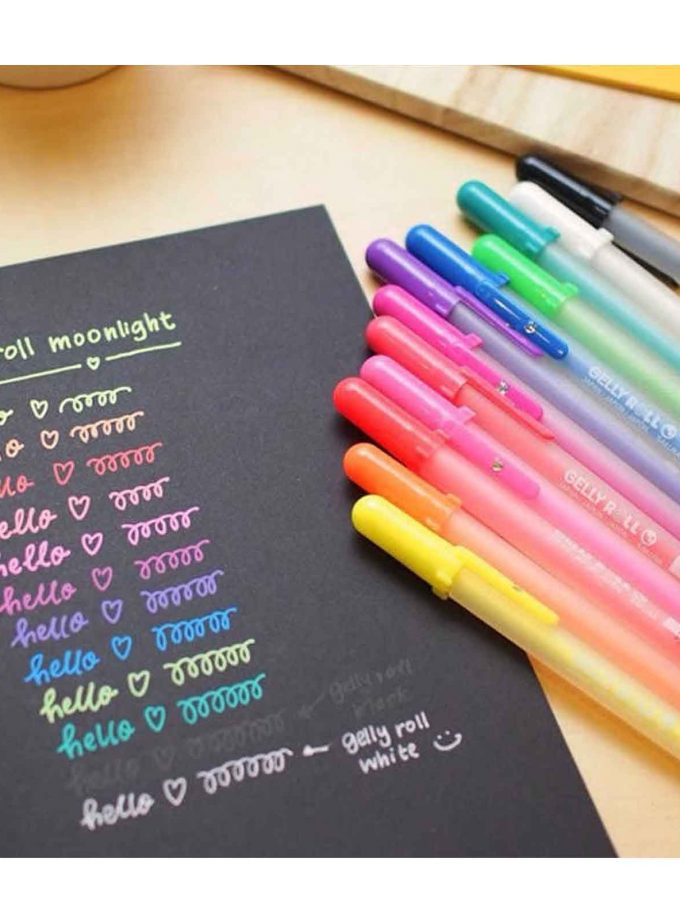 roll moonlight
o ♡
lo ♡
llo ♡
hello ♡
hello ♡
hello ♡
hello ♡
hello ♡
hello ♡
hello ♡
gelly roll
black
hello ♡
gelly roll
white
GELLY ROLL
GELLY ROLL